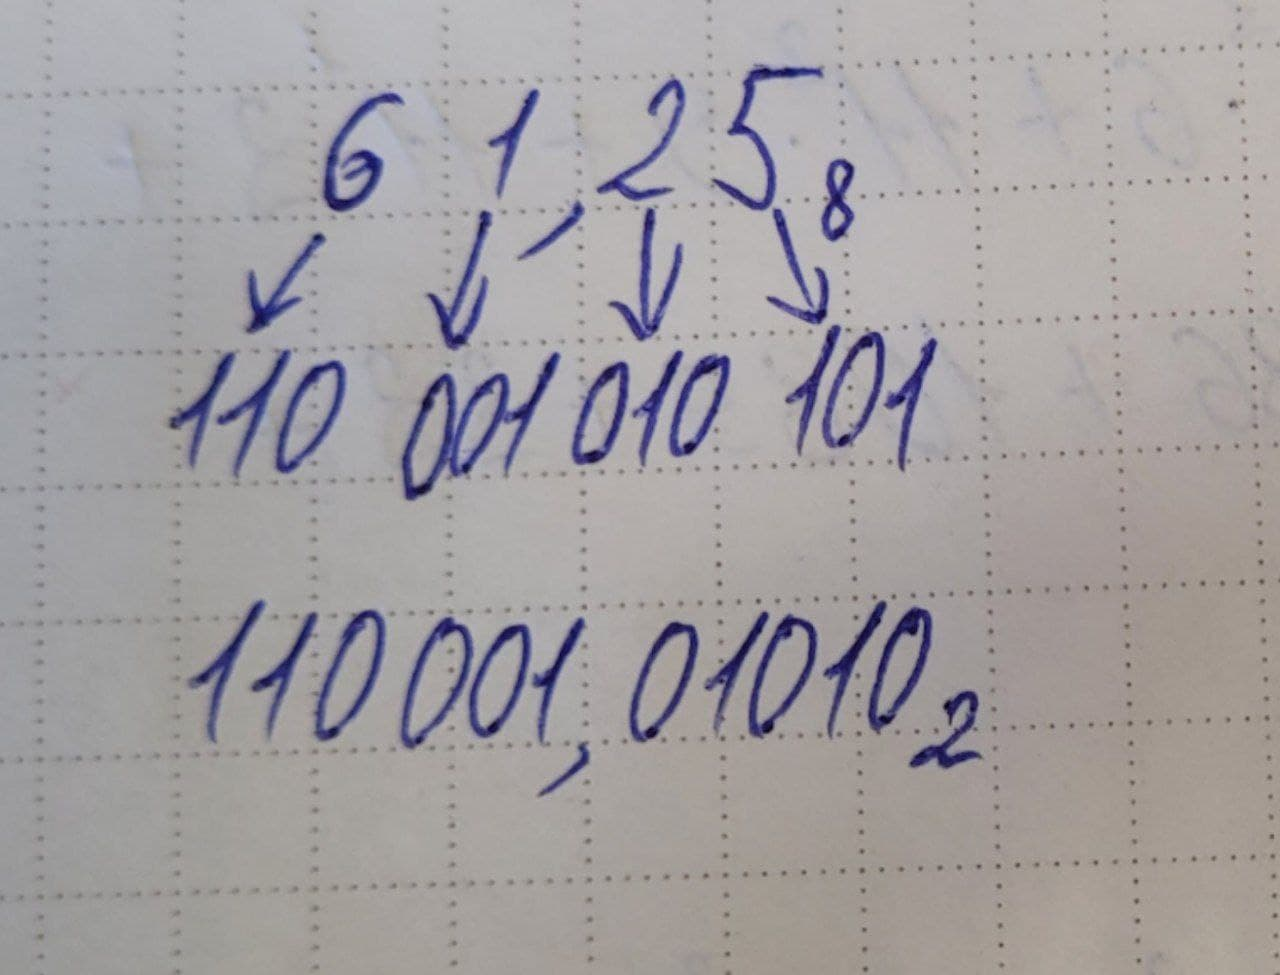 6 1, 2 5₈
110 001 010 101
110 001, 01010₂